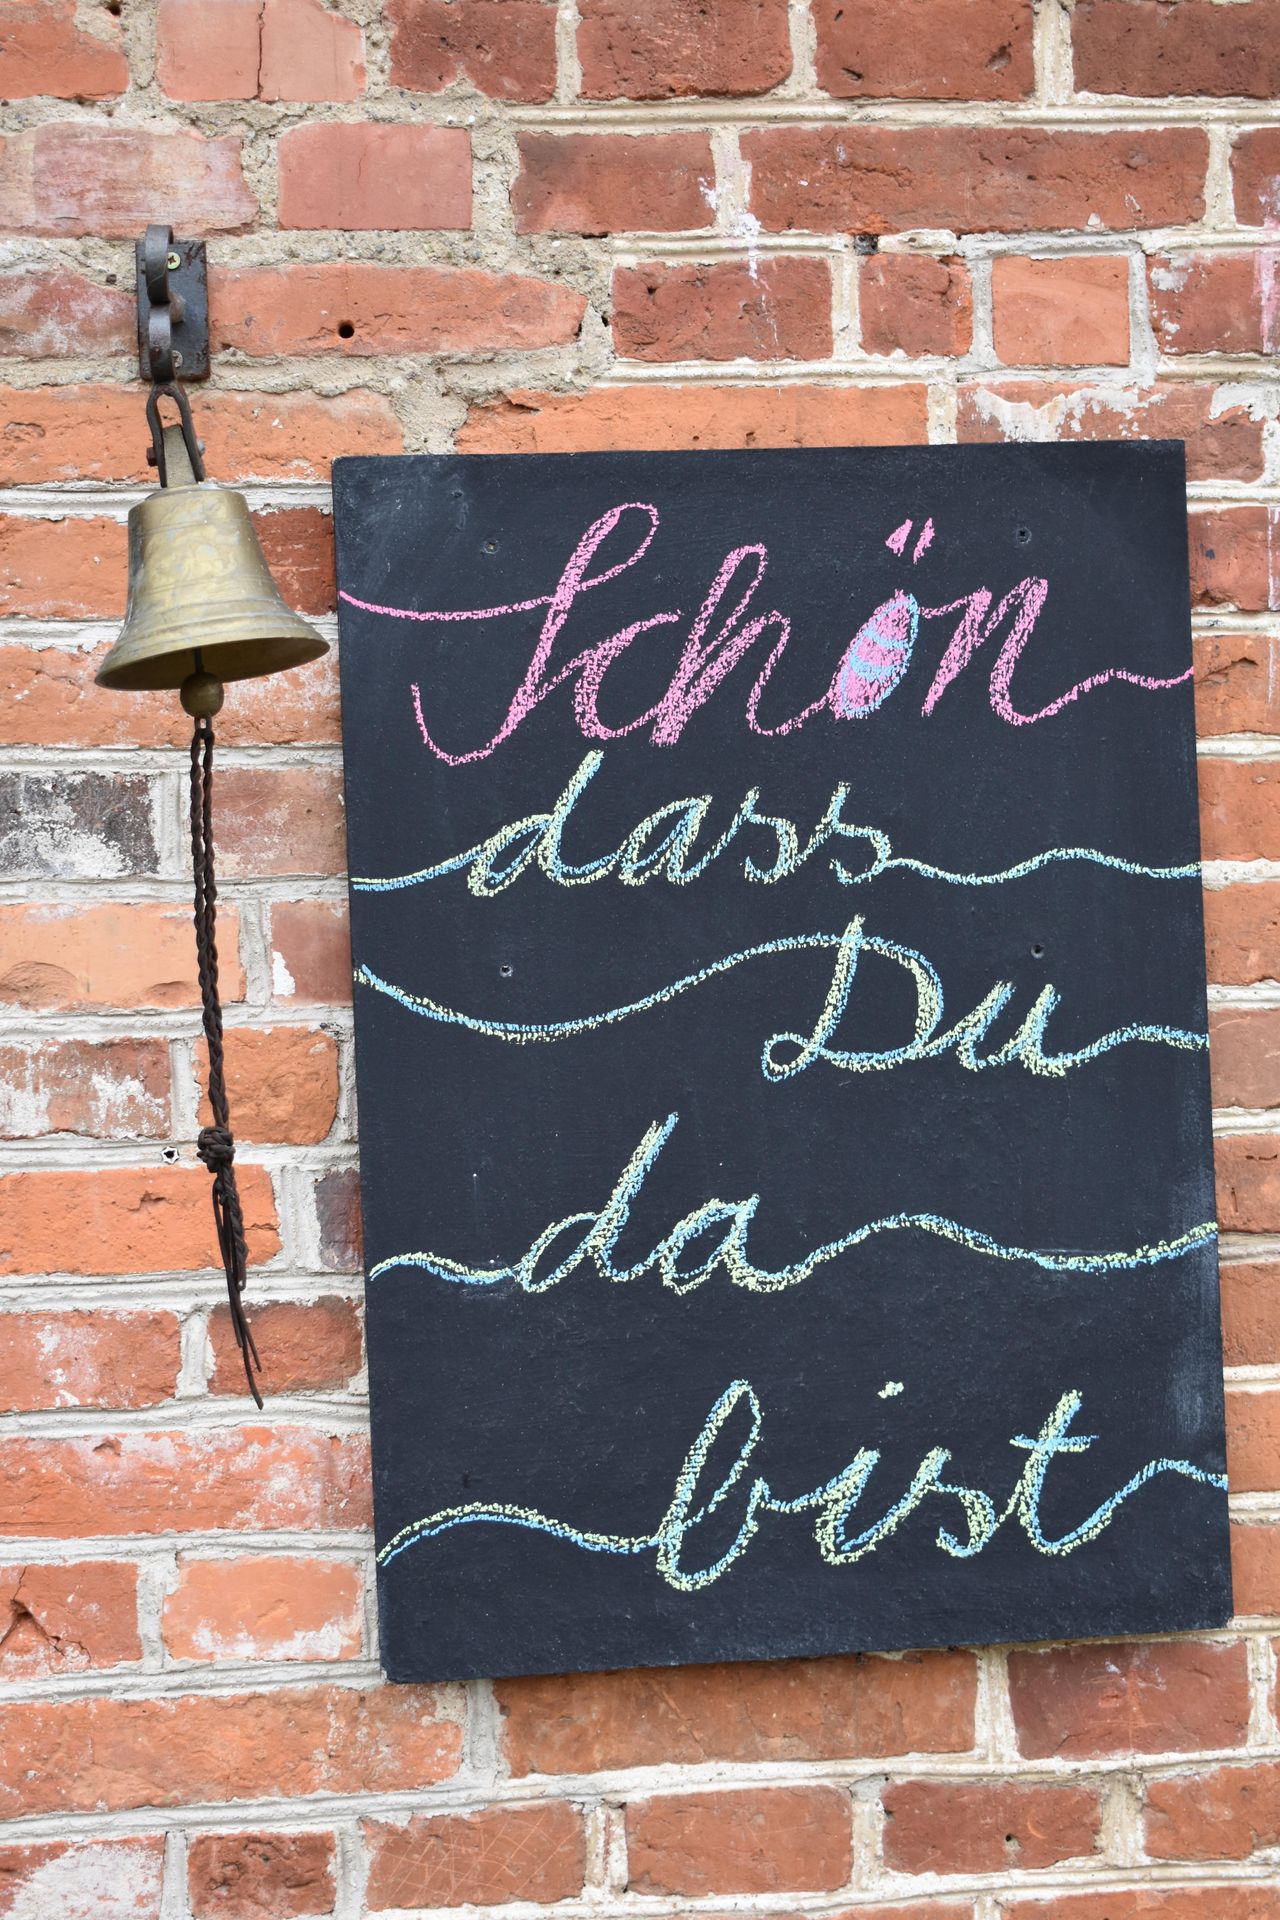 Schön
dass
Du
da
bist